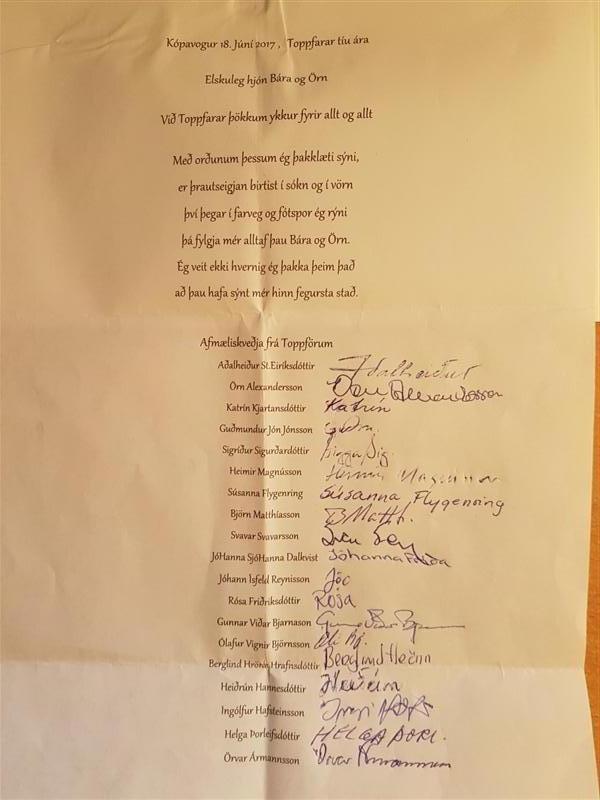 Kópavogur 18. Júní 2017 , Toppfarar tíu ára
Elskuleg hjón Bára og Örn
Við Toppfarar þökkum ykkur fyrir allt og allt
Með orðunum þessum ég þakklæti sýni,
er þrautseigjan birtist í sókn og í vörn
því þegar í farveg og fótspor ég rýni
þá fylgja mér alltaf þau Bára og Örn.
Ég veit ekki hvernig ég þakka þeim það
að þau hafa sýnt mér hinn fegursta stað.
Afmæliskveðja frá Toppförum
Aðalheiður St.Eiríksdóttir Aðalheiður
Örn Alexandersson Örn Alexandersson
Katrín Kjartansdóttir Katrín
Guðmundur Jón Jónsson
Sigríður Sigurðardóttir Sigga Sig
Heimir Magnússon Heimir Magnússon
Súsanna Flygenring Súsanna Flygenring
Björn Matthíasson B Matth.
Svavar Svavarsson
JóHanna SjóHanna Dalkvist Jóhanna Fríða
Jóhann Ísfeld Reynisson Jói
Rósa Friðriksdóttir Rósa
Gunnar Viðar Bjarnason Gunnar Viðar Bjarnason
Ólafur Vignir Björnsson
Berglind Hrönn Hrafnsdóttir Berglind Hrönn
Heiðrún Hannesdóttir Heiðrún
Ingólfur Hafsteinsson
Helga Þorleifsdóttir HELGA ÞORL.
Örvar Ármannsson Örvar Ármannsson